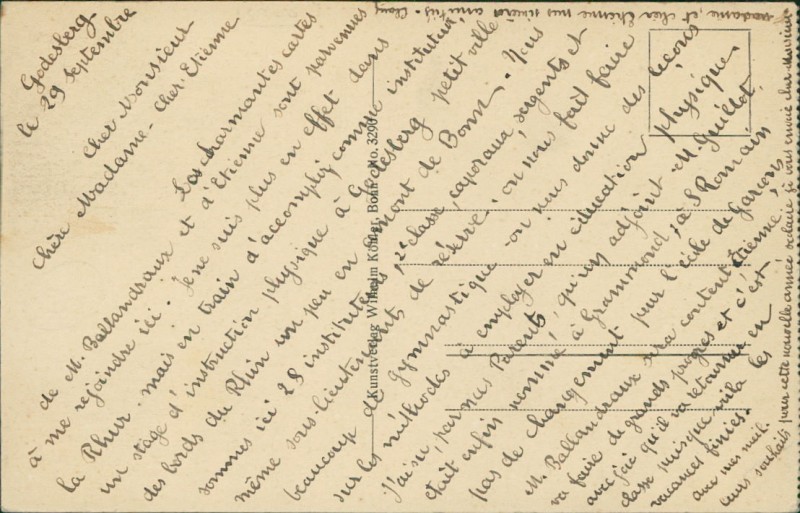 Godesberg
le 29 Septembre
Cher Monsieur
Chère Madame - Cher Etienne
Les charmantes cartes
de M. Ballandraux et d'Etienne sont parvenues
à me rejoindre ici. Je ne suis plus en effet dans
la Rhur. mais en train d'accomplir comme instituteur
un stage d'instruction physique à Godesberg petit ville
des bords du Rhin un peu en amont de Bonn. Nous
sommes ici 28 instituteurs, 2e classe, caporaux, sergents et
même sous-lieutenants de réserve, on nous fait faire
beaucoup de gymnastique on nous donne des leçons
sur les méthodes à employer en éducation physique.
J'ai su, par mes Parents, qu'un adjoint M. Guillot,
était enfin nommé à Grammond, à S Romain
pas de changement pour l'école de garçons
M. Ballandraux sera content Etienne,
va faire de grands progrès et c'est
avec joie qu'il va retourner en
classe puisque voilà les
vacances finies.
avec mes meil.
leurs souhaits pour cette nouvelle année scolaire je vous envoie cher Monsieur
madame, et cher Etienne mes sincères amitiés.
Kunstverlag Wilhelm Köhler, Bonn No. 3290